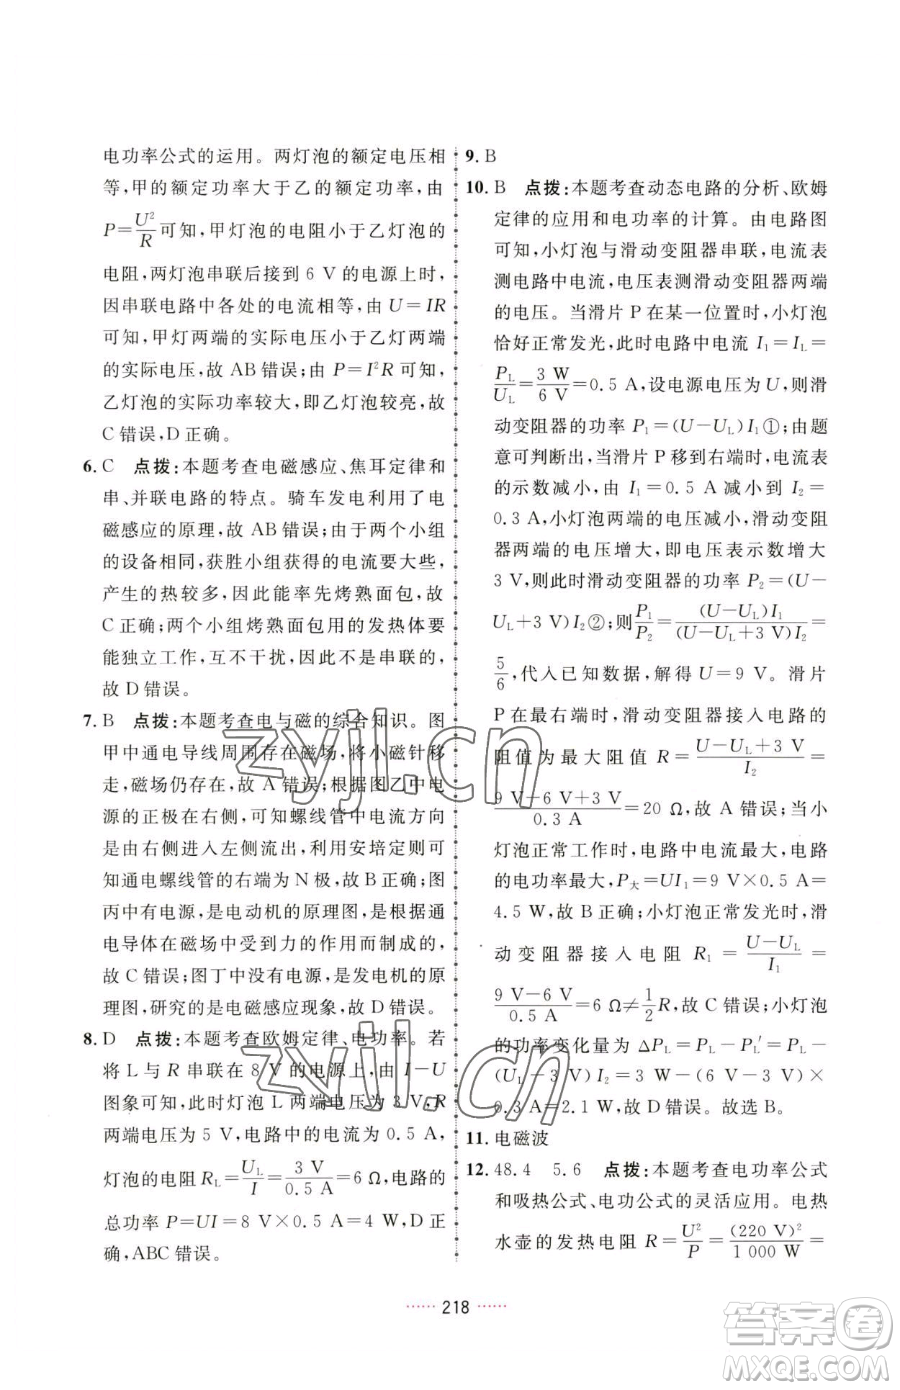 电功率公式的运用。两灯泡的额定电压相
等，甲的额定功率大于乙的额定功率，由
P=U²/R可知，甲灯泡的电阻小于乙灯泡的
电阻，两灯泡串联后接到 6 V 的电源上时，
因串联电路中各处的电流相等，由 U=IR
可知，甲灯两端的实际电压小于乙灯两端
的实际电压，故 AB 错误；由 P=I²R 可知，
乙灯泡的实际功率较大，即乙灯泡较亮，故
C 错误，D 正确。
6. C 点拨：本题考查电磁感应、焦耳定律和
串、并联电路的特点。骑车发电利用了电
磁感应的原理，故 AB 错误；由于两个小组
的设备相同，获胜小组获得的电流要大些，
产生的热较多，因此能率先烤熟面包，故
C 正确；两个小组烤熟面包用的发热体要
能独立工作，互不干扰，因此不是串联的，
故 D 错误。
7. B 点拨：本题考查电与磁的综合知识。图
甲中通电导线周围存在磁场，将小磁针移
走，磁场仍存在，故 A 错误；根据图乙中电
源的正极在右侧，可知螺线管中电流方向
是由右侧进入左侧流出，利用安培定则可
知通电螺线管的右端为 N 极，故 B 正确；图
丙中有电源，是电动机的原理图，是根据通
电导体在磁场中受到力的作用而制成的，
故 C 错误；图丁中没有电源，是发电机的原
理图，研究的是电磁感应现象，故 D 错误。
8. D 点拨：本题考查欧姆定律、电功率。若
将 L 与 R 串联在 8 V 的电源上，由 I－U
图象可知，此时灯泡 L 两端电压为 3 V，R
两端电压为 5 V，电路中的电流为 0.5 A，
灯泡的电阻 R_L=U_L/I=3 V/0.5 A=6 Ω，电路的
总功率 P=UI=8 V×0.5 A=4 W，D 正
确，ABC 错误。
9. B
10. B 点拨：本题考查动态电路的分析、欧姆
定律的应用和电功率的计算。由电路图
可知，小灯泡与滑动变阻器串联，电流表
测电路中电流，电压表测滑动变阻器两端
的电压。当滑片 P 在某一位置时，小灯泡
恰好正常发光，此时电路中电流 I₁=I_L=
P_L/U_L=3 W/6 V=0.5 A，设电源电压为 U，则滑
动变阻器的功率 P₁=(U－U_L)I₁①；由题
意可判断出，当滑片 P 移到右端时，电流表
的示数减小，由 I₁=0.5 A 减小到 I₂=
0.3 A，小灯泡两端的电压减小，滑动变阻
器两端的电压增大，即电压表示数增大
3 V，则此时滑动变阻器的功率 P₂=(U－
U_L+3 V)I₂②；则P₁/P₂=(U－U_L)I₁/(U－U_L+3 V)I₂=
5/6，代入已知数据，解得 U=9 V。滑片
P 在最右端时，滑动变阻器接入电路的电
阻值为最大阻值 R=(U－U_L+3 V)/I₂=
(9 V－6 V+3 V)/0.3 A=20 Ω，故 A 错误；当小
灯泡正常工作时，电路中电流最大，电路
的电功率最大，P大=UI₁=9 V×0.5 A=
4.5 W，故 B 正确；小灯泡正常发光时，滑
动变阻器接入电阻 R₁=(U－U_L)/I₁=
(9 V－6 V)/0.5 A=6 Ω≠1/2R，故 C 错误；小灯泡
的功率变化量为 ΔP_L=P_L－P_L′=P_L－
(U_L－3 V)I₂=3 W－(6 V－3 V)×
0.3 A=2.1 W，故 D 错误。故选 B。
11. 电磁波
12. 48.4 5.6 点拨：本题考查电功率公式
和吸热公式、电功公式的灵活应用。电热
水壶的发热电阻 R=U²/P=(220 V)²/1 000 W=
218
zyjl.cn
zyjl.cn
答案卷
MXQE.COM